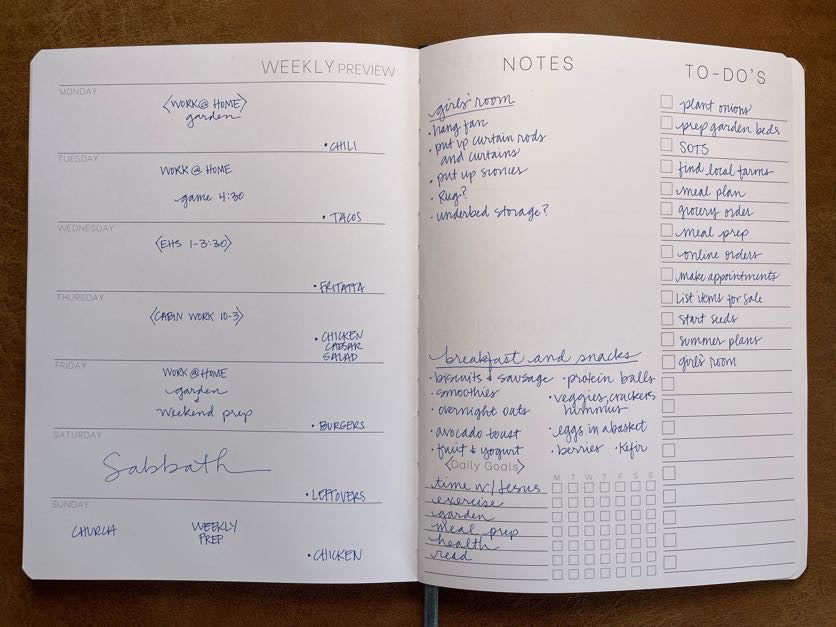 WEEKLY PREVIEW
MONDAY
<WORK@HOME>
garden
• CHILI
TUESDAY
WORK@HOME
game 4:30
• TACOS
WEDNESDAY
<EHS 1-3:30>
• FRITATTA
THURSDAY
<CABIN WORK 10-3>
• CHICKEN
CAESAR
SALAD
FRIDAY
WORK@HOME
garden
&
Weekend prep
• BURGERS
SATURDAY
Sabbath
• LEFTOVERS
SUNDAY
CHURCH WEEKLY
PREP
• CHICKEN
NOTES
girls' room
• hang fan
• put up curtain rods
and curtains
• put up sconces
• Rug?
• underbed storage?
breakfast and snacks
• biscuits & sausage • protein balls
• smoothies • veggies, crackers
hummus
• overnight oats
• avocado toast • eggs in a basket
• fruit & yogurt • berries • Kefir
<Daily Goals>
M T W T F S S
time w/ Jesus
exercise
garden
meal prep
health
read
TO-DO'S
plant onions
prep garden beds
SOTS
find local farms
meal plan
grocery order
meal prep
online orders
make appointments
List items for sale
start seeds
summer plans
girls' room